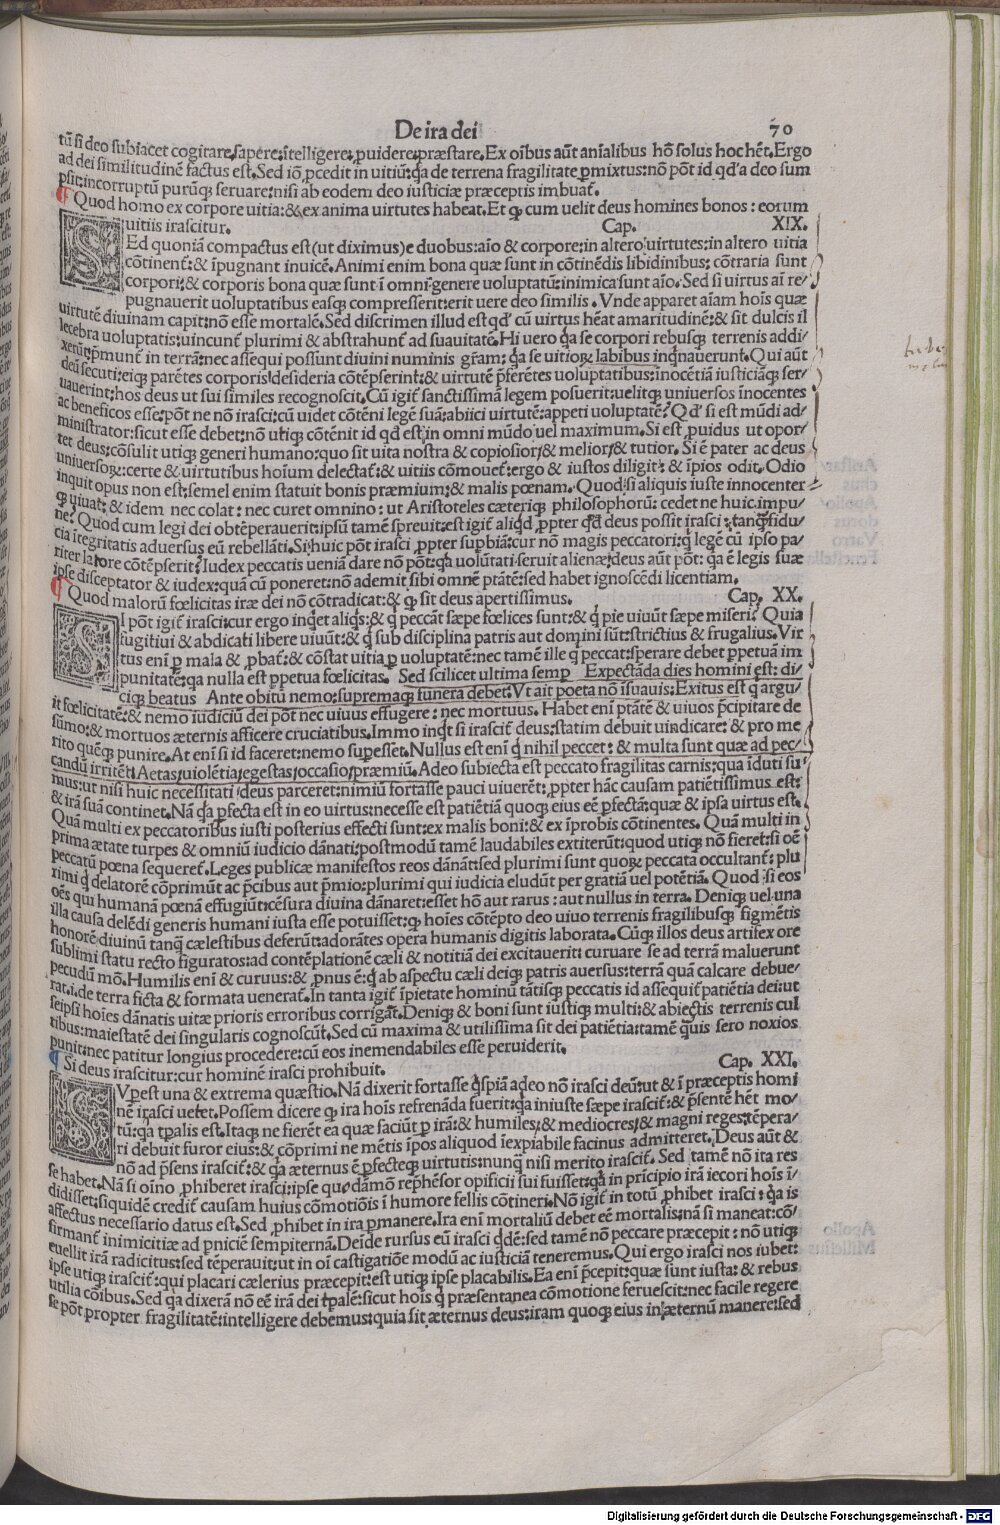 De ira dei 70
tū si deo subiacet cogitare, sapere: ītelligere, puidere, præstare. Ex oībus aūt aīalibus hō solus hoc hēt. Ergo
ad dei similitudinē factus est. Sed iō pcedit in uitiū: qa de terrena fragilitate pmixtus: nō pōt id qd' a deo sum
psit: incorruptū purūqꝫ seruare: nisi ab eodem deo iusticiæ præceptis imbuaī.
¶ Quod homo ex corpore uitia: & ex anima uirtutes habeat. Et qꝫ cum uelit deus homines bonos: eorum
uitiis irascitur. Cap. XIX.
SEd quoniā compactus est (ut diximus) e duobus: aīo & corpore: in altero uirtutes: in altero uitia
cōtinent̄: & īpugnant inuicē. Animi enim bona quæ sunt in cōtinēdis libidinibus: cōtraria sunt
corpori: & corporis bona quæ sunt ī omni genere uoluptatū: inimica sunt aīo. Sed si uirtus aī re/
pugnauerit uoluptatibus easqꝫ compresserit: erit uere deo similis. Vnde apparet aīam hoīs quæ
uirtutē diuinam capit: nō esse mortalē. Sed discrimen illud est qd' cū uirtus hēat amaritudinē: & sit dulcis il
lecebra uoluptatis: uincunt̄ plurimi & abstrahunt̄ ad suauitatē. Hi uero qa se corpori rebusqꝫ terrenis addi/
xerūt: pmunt̄ in terrā: nec assequi possunt diuini numinis gr̄am: qa se uitioꝝ labibus inqnauerunt. Qui aūt
deū secuti: eiqꝫ parētes corporis desideria cōtēpserint: & uirtutē pferētes uoluptatibus: īnocētiā iusticiāqꝫ ser/
uauerint: hos deus ut sui similes recognoscit. Cū igit̄ sanctissimā legem posuerit: uelitqꝫ uniuersos īnocentes
ac beneficos esse: pōt ne nō irasci: cū uidet cōtēni legē suā: abiici uirtutē: appeti uoluptatē? Qd' si est mūdi ad/
ministrator: sicut esse debet: nō utiqꝫ cōtēnit id qd est in omni mūdo uel maximum. Si est puidus ut opor/
tet deus: cōsulit utiqꝫ generi humano: quo sit uita nostra & copiosior/ & melior/ & tutior. Si ē pater ac deus
uniuersoꝝ: certe & uirtutibus hoīum delectat̄: & uitiis cōmouet̄: ergo & iustos diligit: & īpios odit. Odio
inquit opus non est: semel enim statuit bonis præmium: & malis pœnam. Quod si aliquis iuste innocenter
qꝫ uiuat: & idem nec colat: nec curet omnino: ut Aristoteles cæteriqꝫ philosophorū: cedet ne huic impu/
ne? Quod cum legi dei obtēperauerit: ipsū tamē spreuit: est igit̄ aliqd ppter qd deus possit irasci: tanqꝫ fidu/
cia ītegritatis aduersus eū rebellāti. Si huic pōt irasci ppter supbiā: cur nō magis peccatori: q legē cū ipso pa/
riter latore cōtēpserit? Iudex peccatis ueniā dare nō pōt: qa uolūtati seruit alienæ: deus aūt pōt: qa ē legis suæ
ipse disceptator & iudex: quā cū poneret: nō ademit sibi omnē ptātē: sed habet ignoscēdi licentiam.
¶ Quod malorū fœlicitas iræ dei nō cōtradicat: & qꝫ sit deus apertissimus. Cap. XX.
SI pōt igit̄ irasci: cur ergo inqet aliqs: & q peccāt sæpe fœlices sunt: & q pie uiuūt sæpe miseri? Quia
fugitiui & abdicati libere uiuūt: & q sub disciplina patris aut domini sūt: strictius & frugalius. Vir
tus enī p mala & pbat̄: & cōstat uitia p uoluptatē: nec tamē ille q peccat: sperare debet ppetuā im
punitatē: qa nulla est ppetua fœlicitas. Sed scilicet ultima semp Expectāda dies homini est: di/
ciqꝫ beatus Ante obitū nemo: supremaqꝫ funera debet: Vt ait poeta nō īsuauis: Exitus est q argu/
it fœlicitatē: & nemo iudiciū dei pōt nec uiuus effugere: nec mortuus. Habet enī ptātē & uiuos pcipitare de
sūmo: & mortuos æternis afficere cruciatibus. Immo inqt si irascit̄ deus: statim debuit uindicare: & pro me
rito quēqꝫ punire. At enī si id faceret: nemo supesset. Nullus est enī q nihil peccet: & multa sunt quæ ad pec/
candū irritēt: Aetas/ uiolētia/ egestas/ occasio/ præmiū. Adeo subiecta est peccato fragilitas carnis: qua īduti su
mus: ut nisi huic necessitati deus parceret: nimiū fortasse pauci uiuerēt: ppter hāc causam patiētissimus est:
& irā suā continet. Nā qa pfecta est in eo uirtus: necesse est patiētiā quoqꝫ eius eē pfectā: quæ & ipsa uirtus est.
Quā multi ex peccatoribus iusti posterius effecti sunt: ex malis boni: & ex īprobis cōtinentes. Quā multi in
prima ætate turpes & omniū iudicio dānati: postmodū tamē laudabiles extiterūt: quod utiqꝫ nō fieret: si oē
peccatū pœna sequeret̄. Leges publicæ manifestos reos dānāt: sed plurimi sunt quoꝝ peccata occultant̄: plu
rimi q delatorē cōprimūt ac pcibus aut pmio: plurimi qui iudicia eludūt per gratiā uel potētiā. Quod si eos
oēs qui humanā pœnā effugiūt: cēsura diuina dānaret: esset hō aut rarus: aut nullus in terra. Deniqꝫ uel una
illa causa delēdi generis humani iusta esse potuisset: qꝫ hoies cōtēpto deo uiuo terrenis fragilibusqꝫ figmētis
honorē diuinū tanqꝫ cælestibus deferūt: adorātes opera humanis digitis laborata. Cūqꝫ illos deus artifex ore
sublimi statu recto figuratos: ad contēplationē cæli & notitiā dei excitauerit: curuare se ad terrā maluerunt
pecudū mō. Humilis enī & curuus: & pnus ē: q ab aspectu cæli deiqꝫ patris auersus: terrā quā calcare debue/
rat. i. de terra ficta & formata uenerat̄. In tanta igit̄ īpietate hominū tātisqꝫ peccatis id assequit̄ patiētia dei: ut
seipsi hoies dānatis uitæ prioris erroribus corrigāt. Deniqꝫ & boni sunt iustiqꝫ multi: & abiectis terrenis cul
tibus: maiestatē dei singularis cognoscūt. Sed cū maxima & utilissima sit dei patiētia: tamē quīs sero noxios
punit: nec patitur longius procedere: cū eos inemendabiles esse peruiderit.
¶ Si deus irascitur: cur hominē irasci prohibuit. Cap. XXI.
SVpest una & extrema quæstio. Nā dixerit fortasse qspiā adeo nō irasci deū: ut & ī præceptis homi
nē irasci uetet. Possem dicere qꝫ ira hoīs refrenāda fuerit: qa iniuste sæpe irascit̄: & psentē hēt mo/
tū: qa tpalis est. Itaqꝫ ne fierēt ea quæ faciūt p irā: & humiles/ & mediocres/ & magni reges: tēpera/
ri debuit furor eius: & cōprimi ne mētis īpos aliquod īexpiabile facinus admitteret. Deus aūt &
nō ad psens irascit̄: & qa æternus ē pfecteqꝫ uirtutis: nunqꝫ nisi merito irascit̄. Sed tamē nō ita res
se habet. Nā si oīno phiberet irasci: ipse quodāmō rephēsor opificii sui fuisset: qa in principio irā iecori hoīs ī/
didisset: siquidē credit̄ causam huius cōmotiōis ī humore fellis cōtineri. Nō igit̄ in totū phibet irasci: qa is
affectus necessario datus est. Sed phibet in ira pmanere. Ira enī mortaliū debet eē mortalis: nā si maneat: cō/
firmant̄ inimicitiæ ad pniciē sempiternā. Deīde rursus eū irasci qdē: sed tamē nō peccare præcepit: nō utiqꝫ
euellit irā radicitus: sed tēperauit: ut in oī castigatiōe modū ac iusticiā teneremus. Qui ergo irasci nos iubet:
ipse utiqꝫ irascit̄: qui placari cælerius præcepit: est utiqꝫ ipse placabilis. Ea enī pcepit: quæ sunt iusta: & rebus
utilia cōibus. Sed qa dixerā nō eē irā dei tpalē: sicut hoīs q præsentanea cōmotione feruescit: nec facile regere
se pōt propter fragilitatē: intelligere debemus: quia sit æternus deus: iram quoqꝫ eius in æternū manere: sed
Digitalisierung gefördert durch die Deutsche Forschungsgemeinschaft - DFG